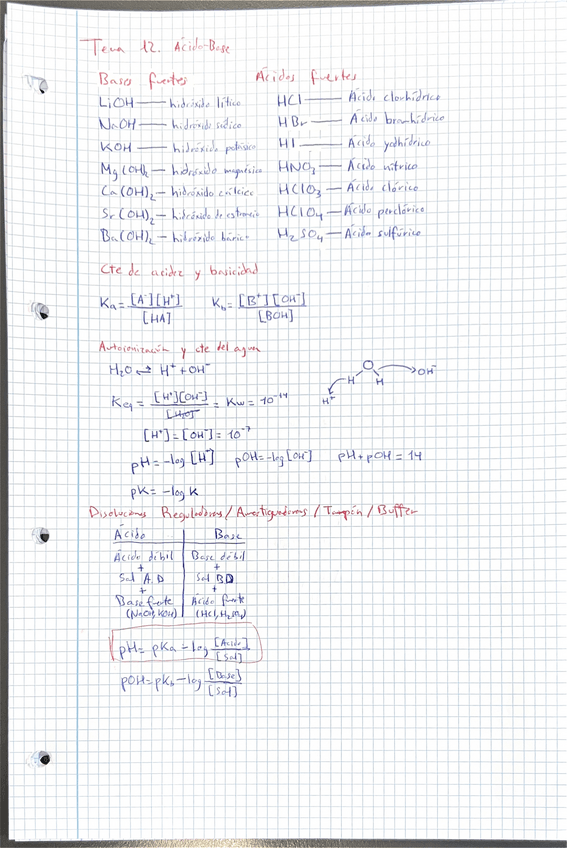 Tema 12. Ácido-Base
Bases fuertes Ácidos fuertes
LiOH — hidróxido lítico HCl — Ácido clorhídrico
NaOH — hidróxido sódico HBr — Ácido bromhídrico
KOH — hidróxido potásico HI — Ácido yodhídrico
Mg(OH)₂ — hidróxido magnésico HNO₃ — Ácido nítrico
Ca(OH)₂ — hidróxido cálcico HClO₃ — Ácido clórico
Sr(OH)₂ — hidróxido de estroncio HClO₄ — Ácido perclórico
Ba(OH)₂ — hidróxido bárico H₂SO₄ — Ácido sulfúrico
Cte de acidez y basicidad
Ka = [A⁻][H⁺] / [HA] Kb = [B⁺][OH⁻] / [BOH]
Autoionización y cte del agua
H₂O ⇌ H⁺ + OH⁻
O
H H
H⁺ OH⁻
Keq = [H⁺][OH⁻] / [H₂O] = Kw = 10⁻¹⁴
[H⁺] = [OH⁻] = 10⁻⁷
pH = -log [H⁺] pOH = -log [OH⁻] pH + pOH = 14
pK = -log K
Disoluciones Reguladoras / Amortiguadoras / Tampón / Buffer
Ácido Base
Ácido débil Base débil
+ +
Sal A.D Sal BD
+ +
Base fuerte Ácido fuerte
(NaOH, KOH) (HCl, H₂SO₄)
pH = pKa - log [Ácido] / [Sal]
pOH = pKb - log [Base] / [Sal]